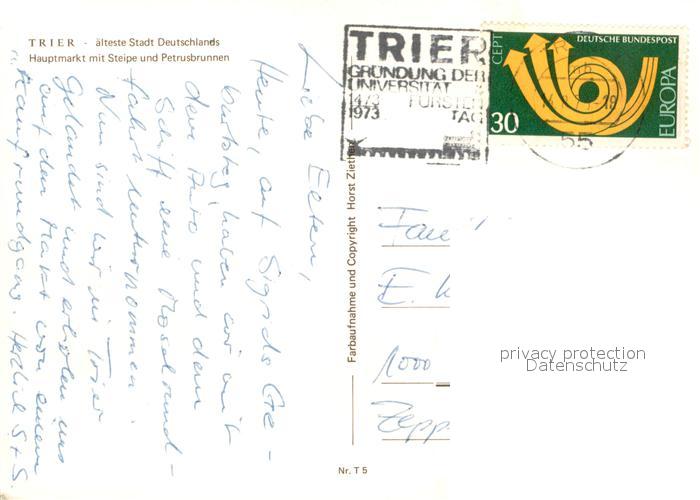 TRIER - älteste Stadt Deutschlands
Hauptmarkt mit Steipe und Petrusbrunnen
Liebe Eltern,
Heute, auf Sigrids Ge-
burtstag, haben wir mit
dem Auto und dem
Schiff eine Moselrund-
fahrt unternommen
Nun sind wir in Trier
Gelandet und erholen uns
auf dem Markt von einem
S+S.
Farbaufnahme und Copyright Horst Ziethen
Nr. T 5
TRIER
GRÜNDUNG DER
UNIVERSITÄT
1473 FÜRSTEN
1973 TAG
55
CEPT
DEUTSCHE BUNDESPOST
EUROPA
30
Fam
E. K
1000
Zepp
privacy protection
Datenschutz